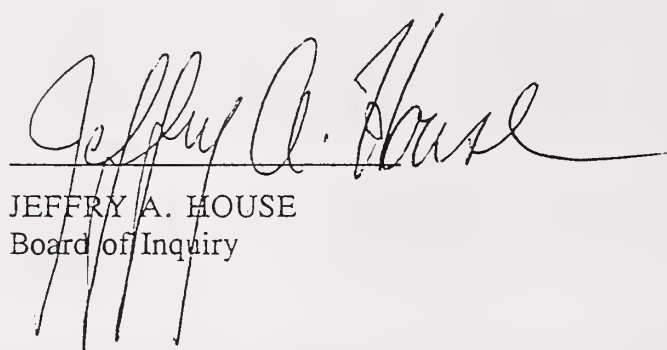 Jeffry A. House
JEFFRY A. HOUSE
Board of Inquiry